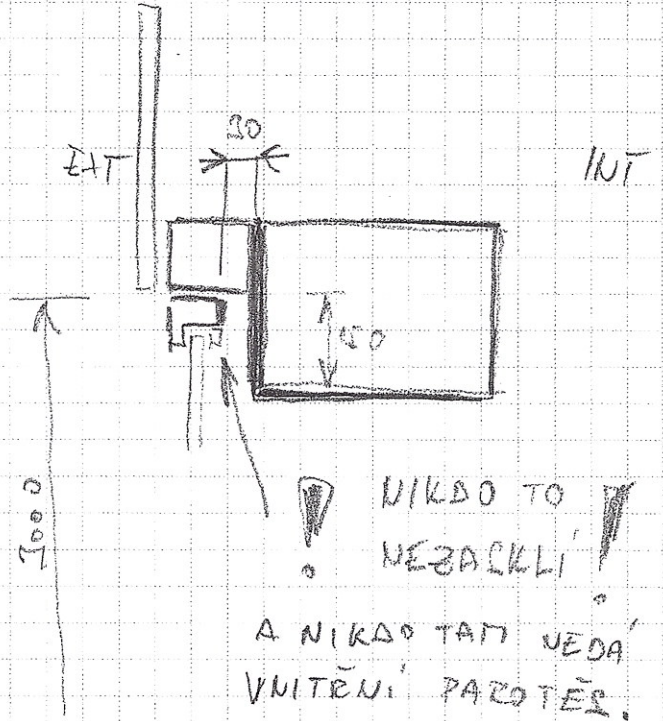 30
EXT
INT
150
3000
NIKDO TO
NEZASKLÍ
A NIKDO TAM NEDÁ
VNITŘNÍ PAROTĚS.